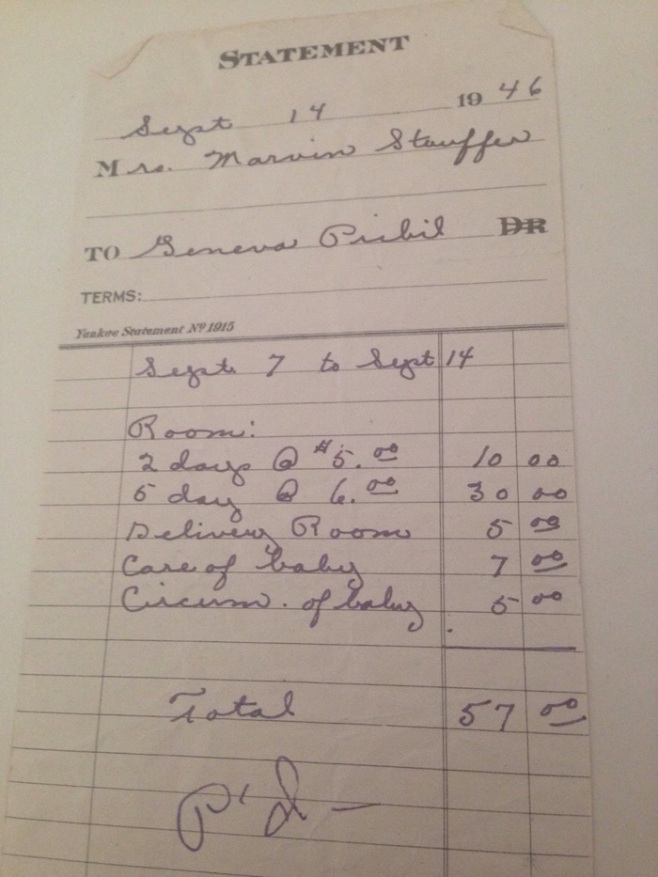 STATEMENT
Sept 14 1946
Mrs. Marvin Stauffer
TO Geneva Pribil DR
TERMS:
Yankee Statement Nº 1915
Sept. 7 to Sept 14
Room:
2 days @ $5.00 10 00
5 day @ 6.00 30 00
Delivery Room 5 00
Care of baby 7 00
Circum. of baby 5 00
Total 57 00
P'd —